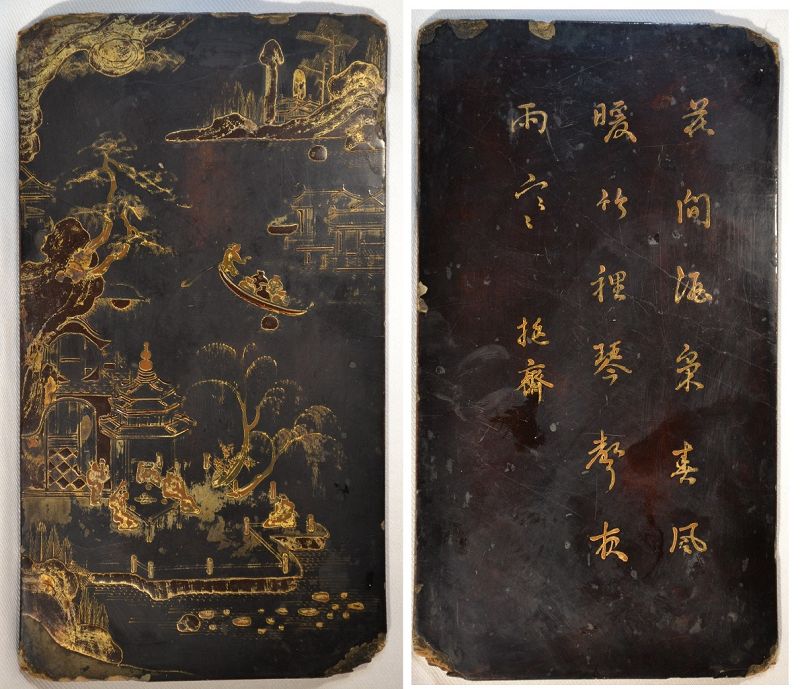 花間酒氣春風
暖竹裡琴聲夜
雨寒 挺齋